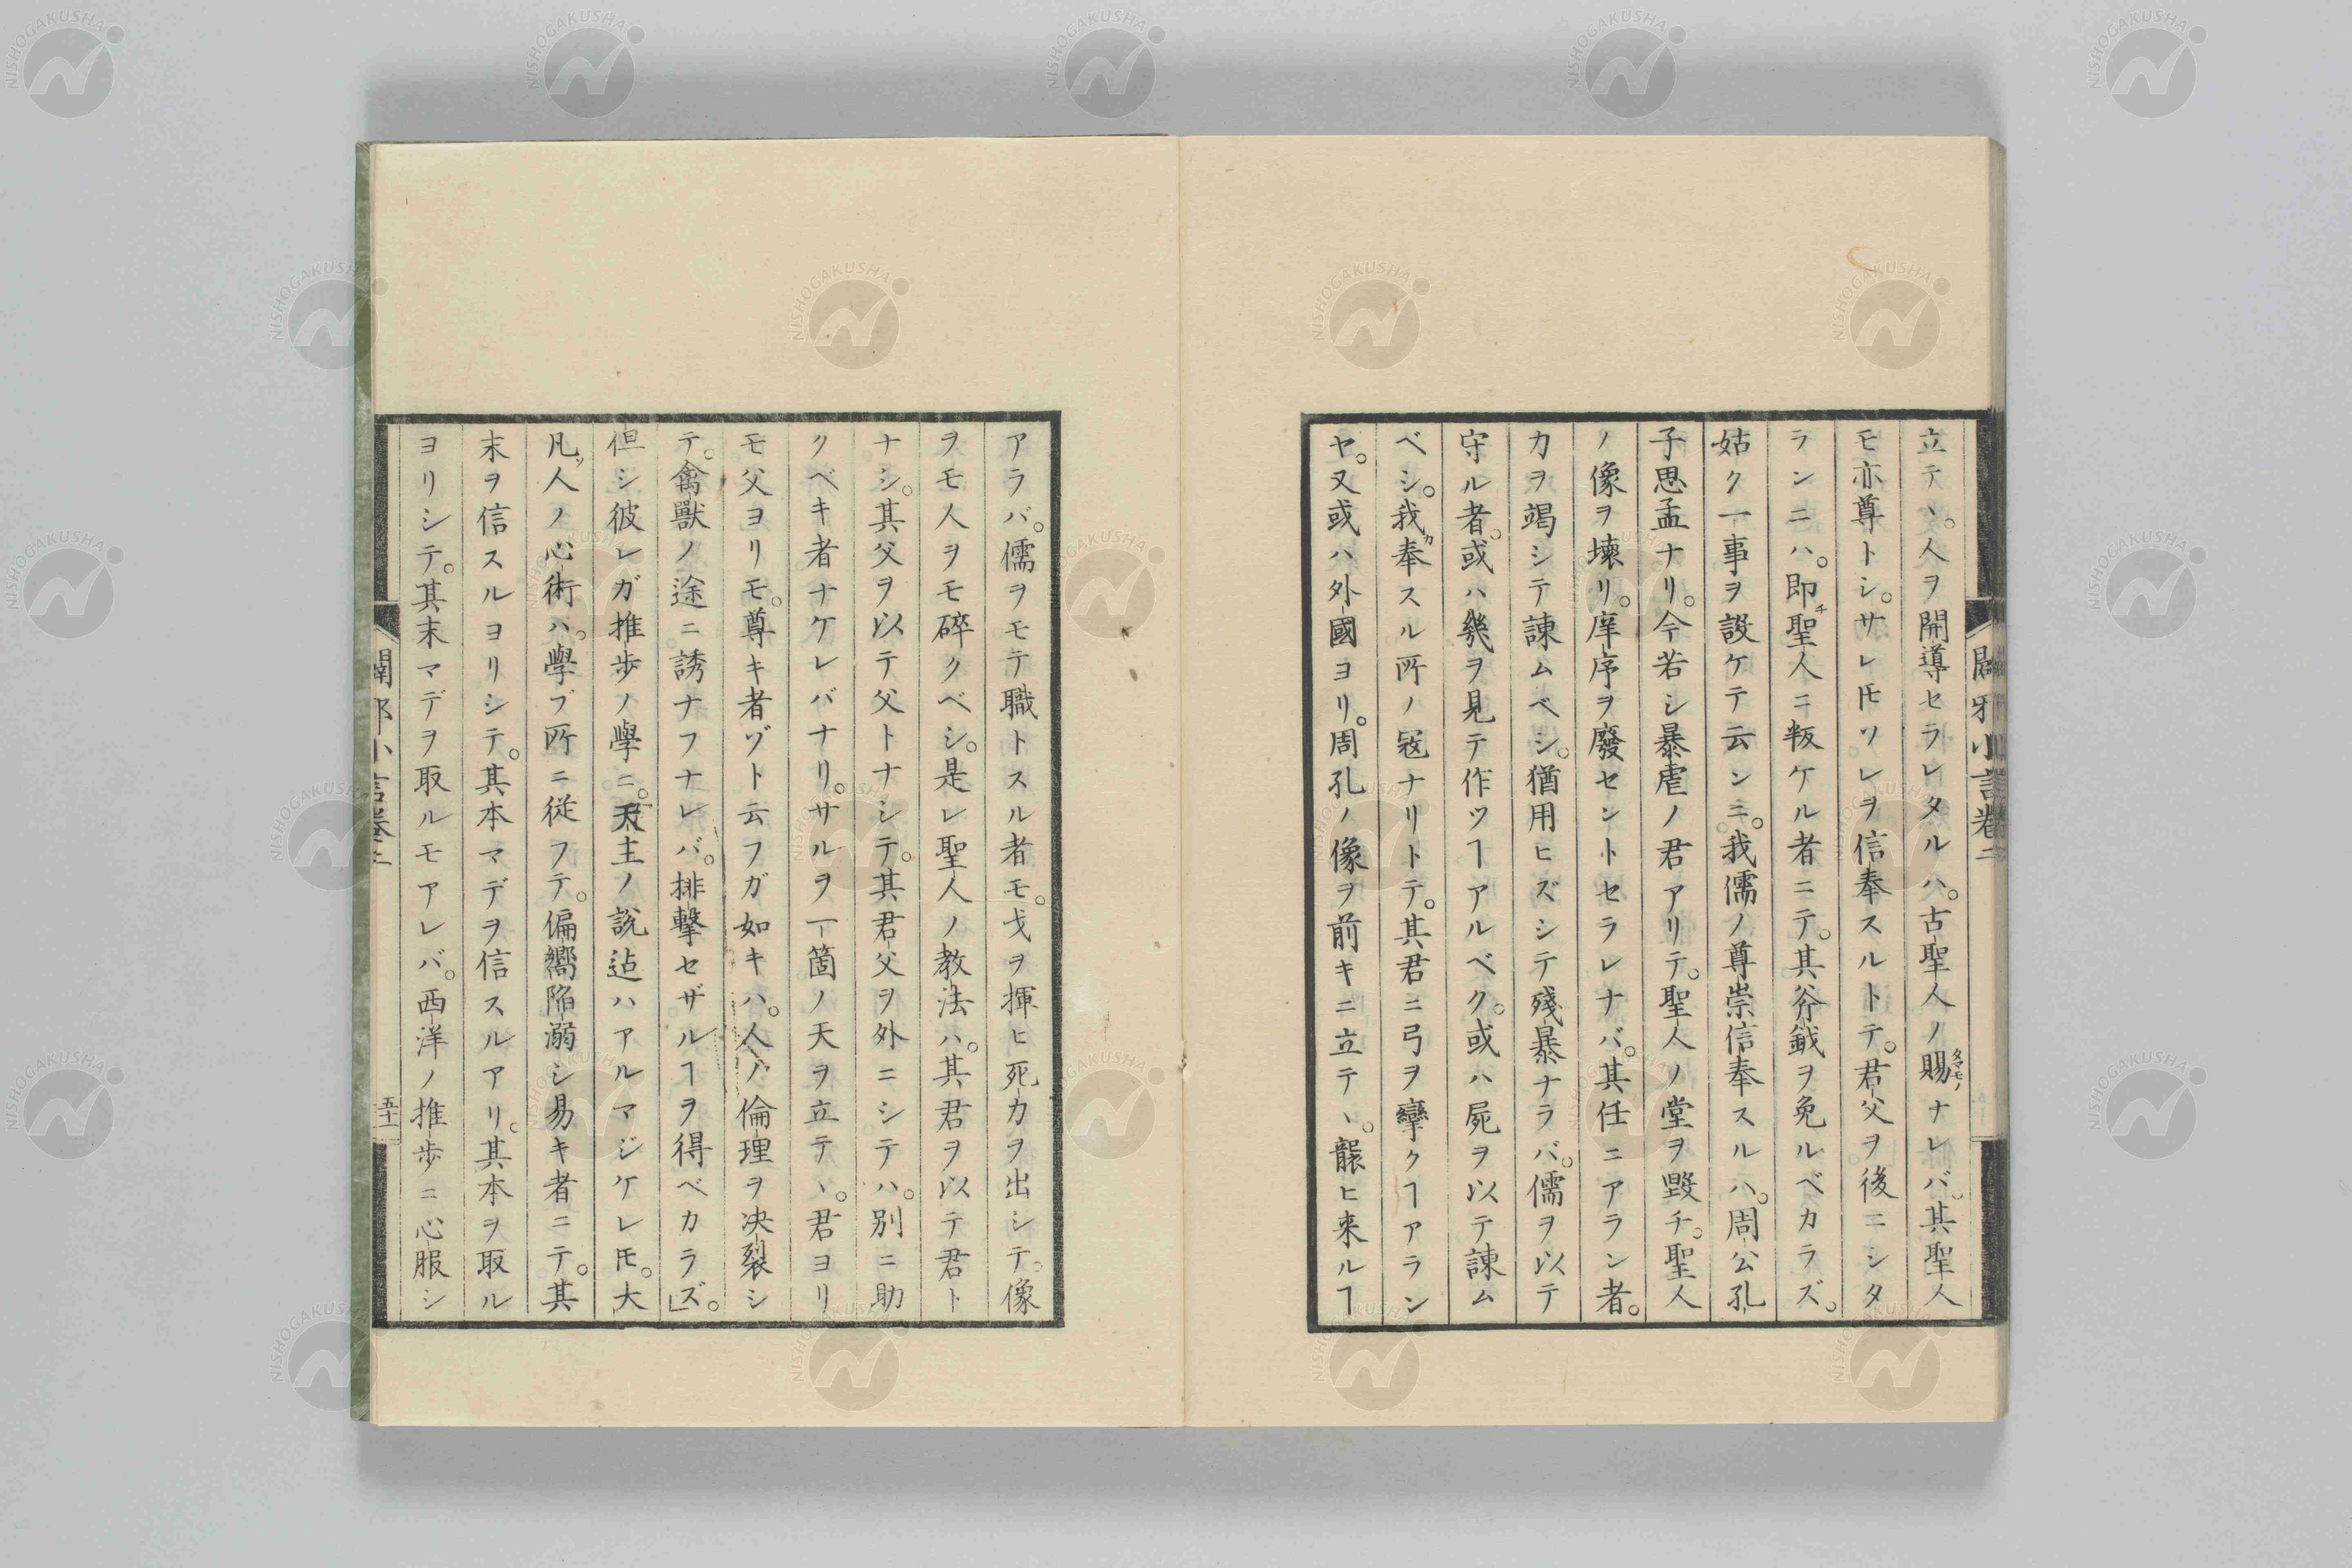 立テヽ。人ヲ開導セラレタルハ。古聖人ノ賜タマモノナレバ。其聖人
モ亦尊トシ。サレ𪜈ソレヲ信奉スルトテ。君父ヲ後ニシタ
ランニハ。即チ聖人ニ叛ケル者ニテ。其斧鉞ヲ免ルベカラズ。
姑ク一事ヲ設ケテ云ンニ。我儒ノ尊崇信奉スルハ。周公孔
子思孟ナリ。今若シ暴虐ノ君アリテ。聖人ノ堂ヲ毀チ。聖人
ノ像ヲ壊リ。庠序ヲ廢セントセラレナバ。其任ニアラン者。
力ヲ竭シテ諫ムベシ。猶用ヒズシテ殘暴ナラバ。儒ヲ以テ
守ル者。或ハ幾ヲ見テ作ツヿアルベク。或ハ屍ヲ以テ諫ム
ベシ。我カ奉スル所ノ冦ナリトテ。其君ニ弓ヲ彎クヿアラン
ヤ。又或ハ外國ヨリ。周孔ノ像ヲ前キニ立テヽ。襲ヒ来ルヿ
闢邪小言卷二
アラバ。儒ヲモテ職トスル者モ。戈ヲ揮ヒ死力ヲ出シテ。像
ヲモ人ヲモ碎クベシ。是レ聖人ノ教法ハ。其君ヲ以テ君ト
ナシ。其父ヲ以テ父トナシテ。其君父ヲ外ニシテハ。別ニ助
クベキ者ナケレバナリ。サルヲ一箇ノ天ヲ立テヽ。君ヨリ
モ父ヨリモ。尊キ者ゾト云フガ如キハ。人ノ倫理ヲ决裂シ
テ。禽獸ノ途ニ誘ナフナレバ。排撃セザルヿヲ得ベカラズ。」
但シ彼レガ推歩ノ學ニ。天主ノ説迠ハアルマジケレ𪜈。大
凡ソ人ノ心術ハ。學ブ所ニ従フテ。偏嚮陥溺シ易キ者ニテ。其
末ヲ信スルヨリシテ。其本マデヲ信スルアリ。其本ヲ取ル
ヨリシテ。其末マデヲ取ルモアレバ。西洋ノ推歩ニ心服シ
闢邪小言卷二
五十一
NISHOGAKUSHA